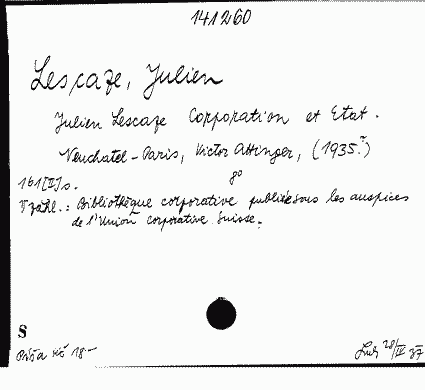 141260
Lescaze, Julien
Julien Lescaze Corporation et Etat.
Neuchatel-Paris, Victor Attinger, (1935.?)
8°
161 [I] s.
V záhl.: Bibliothèque corporative publiée sous les auspices
de l'Union corporative Suisse.
S
Kč 18-
28/IV 37